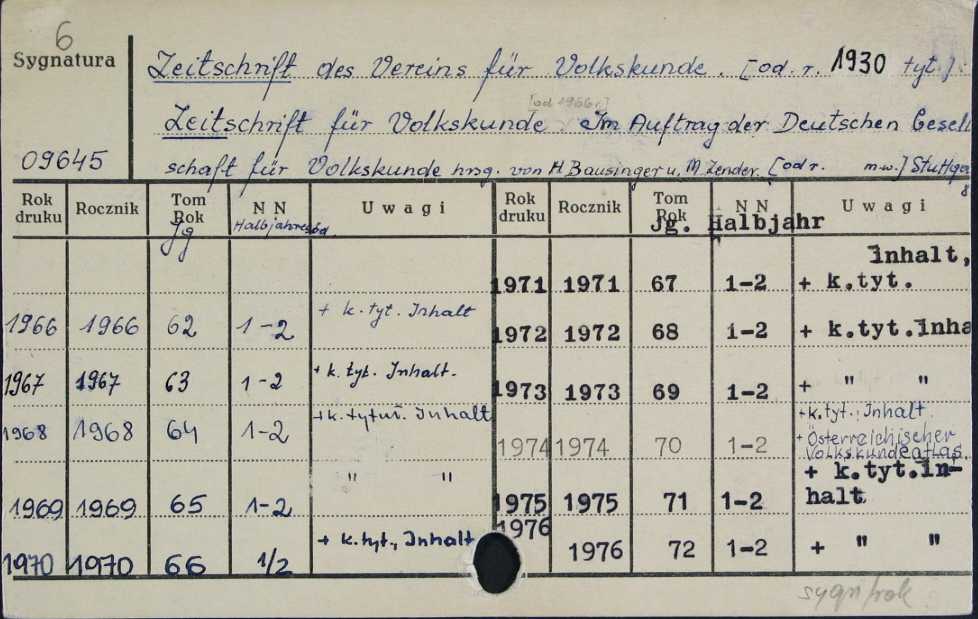 6
Sygnatura
09645
Zeitschrift des Vereins für Volkskunde. [od. r. 1930 tyt.]
[od 1966 r.]
Zeitschrift für Volkskunde. Im Auftrag der Deutschen Gesell
schaft für Volkskunde hrsg. von H. Bausinger u. M. Zender. [od r. m.w.] Stuttga
Rok druku Rocznik Tom Rok Jg N N Halbjahresbd. Uwagi
1966 1966 62 1-2 + k. tyt. Inhalt
1967 1967 63 1-2 + k. tyt. Inhalt.
1968 1968 64 1-2 + k. tytuł. Inhalt
1969 1969 65 1-2 " "
1970 1970 66 1/2 + k. tyt., Inhalt
Rok druku Rocznik Tom Rok Jg. N N Halbjahr Uwagi
inhalt,
1971 1971 67 1-2 + k.tyt.
1972 1972 68 1-2 + k.tyt.inha
1973 1973 69 1-2 + " "
1974 1974 70 1-2 + k.tyt., Inhalt
+ Österreichischer
Volkskundeatlas.
1975 1975 71 1-2 + k.tyt.in-
halt
1976 1976 72 1-2 + " "
sygn/rok